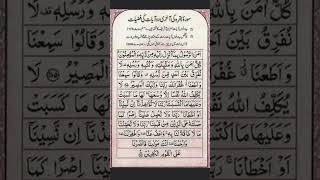 سورۃ بقرہ کی آخری دو آیات کی فضیلت
اٰمَنَ الرَّسُوْلُ بِمَاۤ اُنْزِلَ اِلَيْهِ مِنْ رَّبِّهٖ وَالْمُؤْمِنُوْنَ
كُلٌّ اٰمَنَ بِاللّٰهِ وَمَلٰٓئِكَتِهٖ وَكُتُبِهٖ وَرُسُلِهٖ لَا
نُفَرِّقُ بَيْنَ اَحَدٍ مِّنْ رُّسُلِهٖ وَقَالُوْا سَمِعْنَا
وَاَطَعْنَا غُفْرَانَكَ رَبَّنَا وَاِلَيْكَ الْمَصِيْرُ لَا
يُكَلِّفُ اللّٰهُ نَفْسًا اِلَّا وُسْعَهَا لَهَا مَا كَسَبَتْ
وَعَلَيْهَا مَا اكْتَسَبَتْ رَبَّنَا لَا تُؤَاخِذْنَاۤ اِنْ نَّسِيْنَاۤ
اَوْ اَخْطَاْنَا رَبَّنَا وَلَا تَحْمِلْ عَلَيْنَاۤ اِصْرًا كَمَا
حَمَلْتَهٗ عَلَى الَّذِيْنَ مِنْ قَبْلِنَا رَبَّنَا وَلَا تُحَمِّلْنَا
مَا لَا طَاقَةَ لَنَا بِهٖ وَاعْفُ عَنَّا وَاغْفِرْ لَنَا
وَارْحَمْنَا اَنْتَ مَوْلٰىنَا فَانْصُرْنَا
عَلَى الْقَوْمِ الْكٰفِرِيْنَ